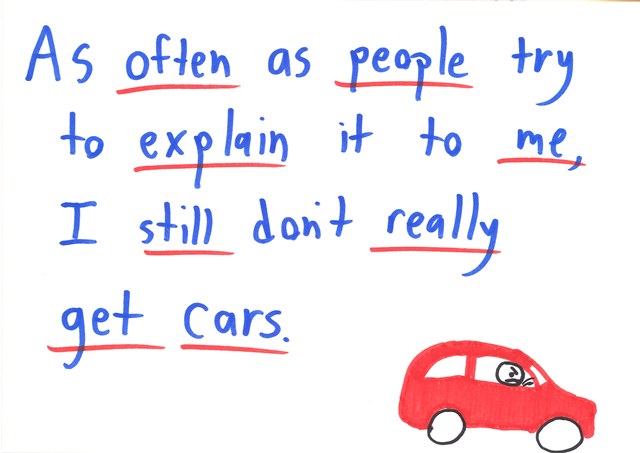 As often as people try
to explain it to me,
I still don't really
get cars.